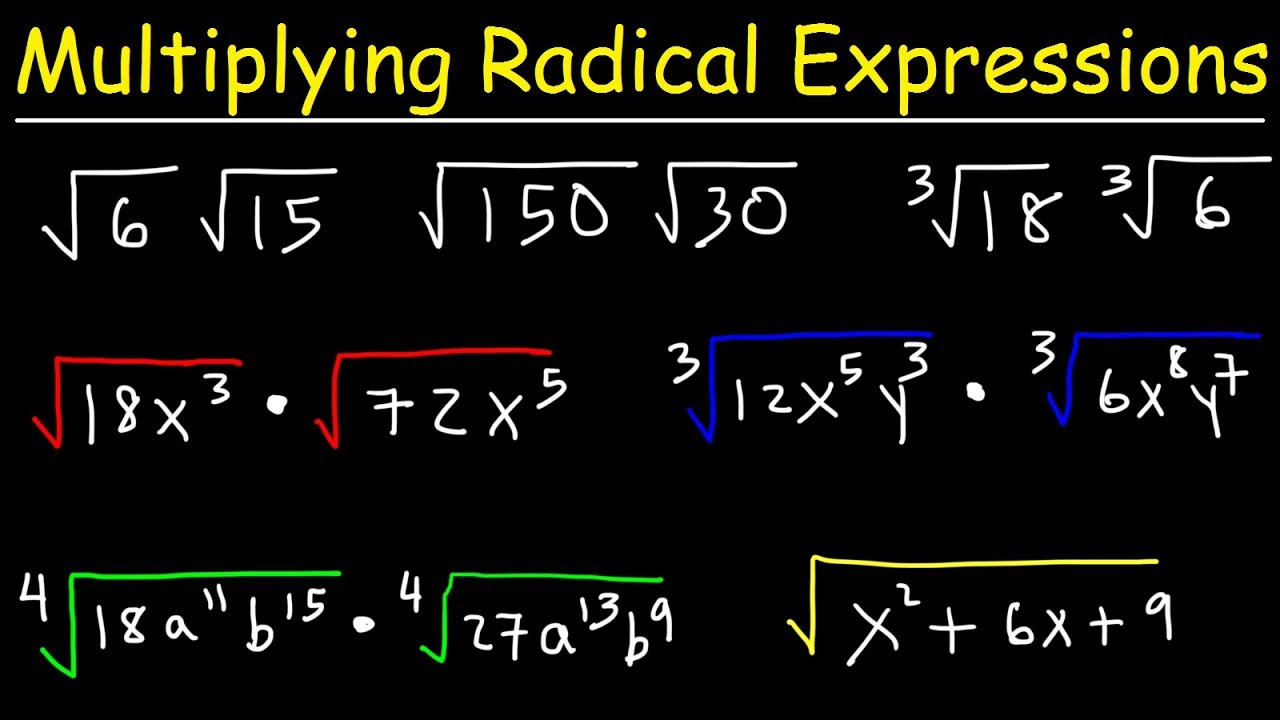 Multiplying Radical Expressions
√6 √15 √150 √30 ³√18 ³√6
√18x³ • √72x⁵ ³√12x⁵y³ • ³√6x⁸y⁷
⁴√18a¹¹b¹⁵ • ⁴√27a¹³b⁹ √x² + 6x + 9